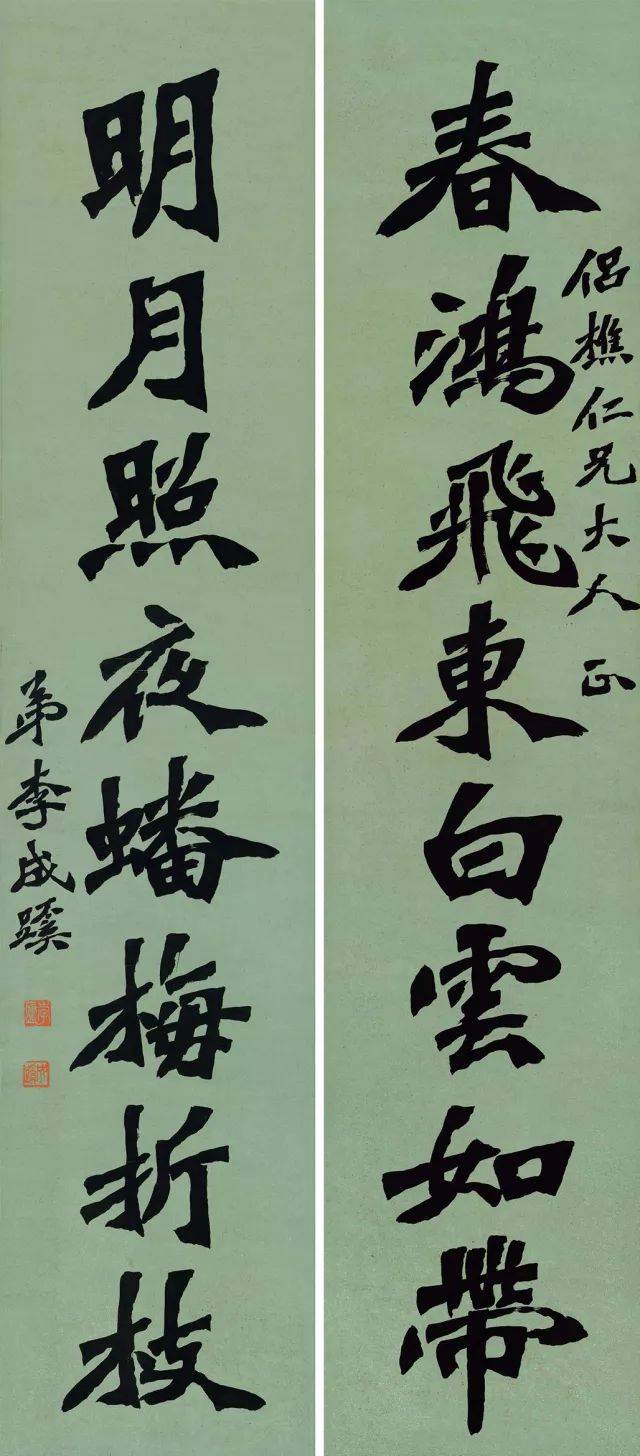 侣樵仁兄大人 正
春鴻飛東白雲如帶
明月照夜蟠梅折枝
弟李成蹊